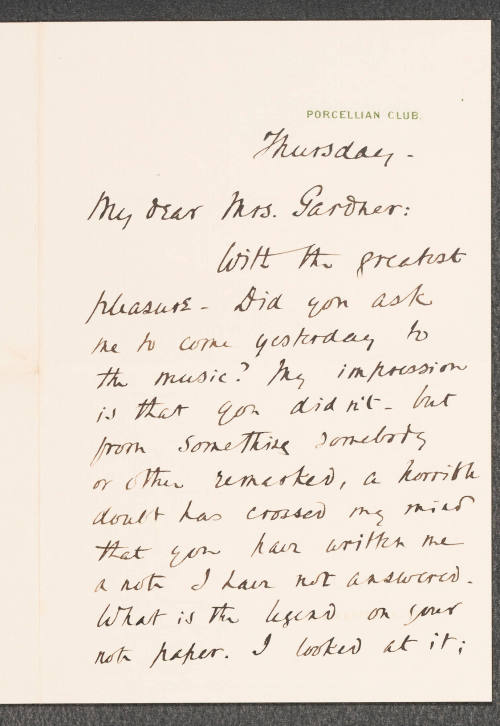 PORCELLIAN CLUB.
Thursday -
My dear Mrs. Gardner:
With the greatest
pleasure - Did you ask
me to come yesterday to
the music? My impression
is that you didn't - but
from something somebody
or other remarked, a horrible
doubt has crossed my mind
that you have written me
a note I have not answered.
What is the legend on your
note paper. I looked at it;